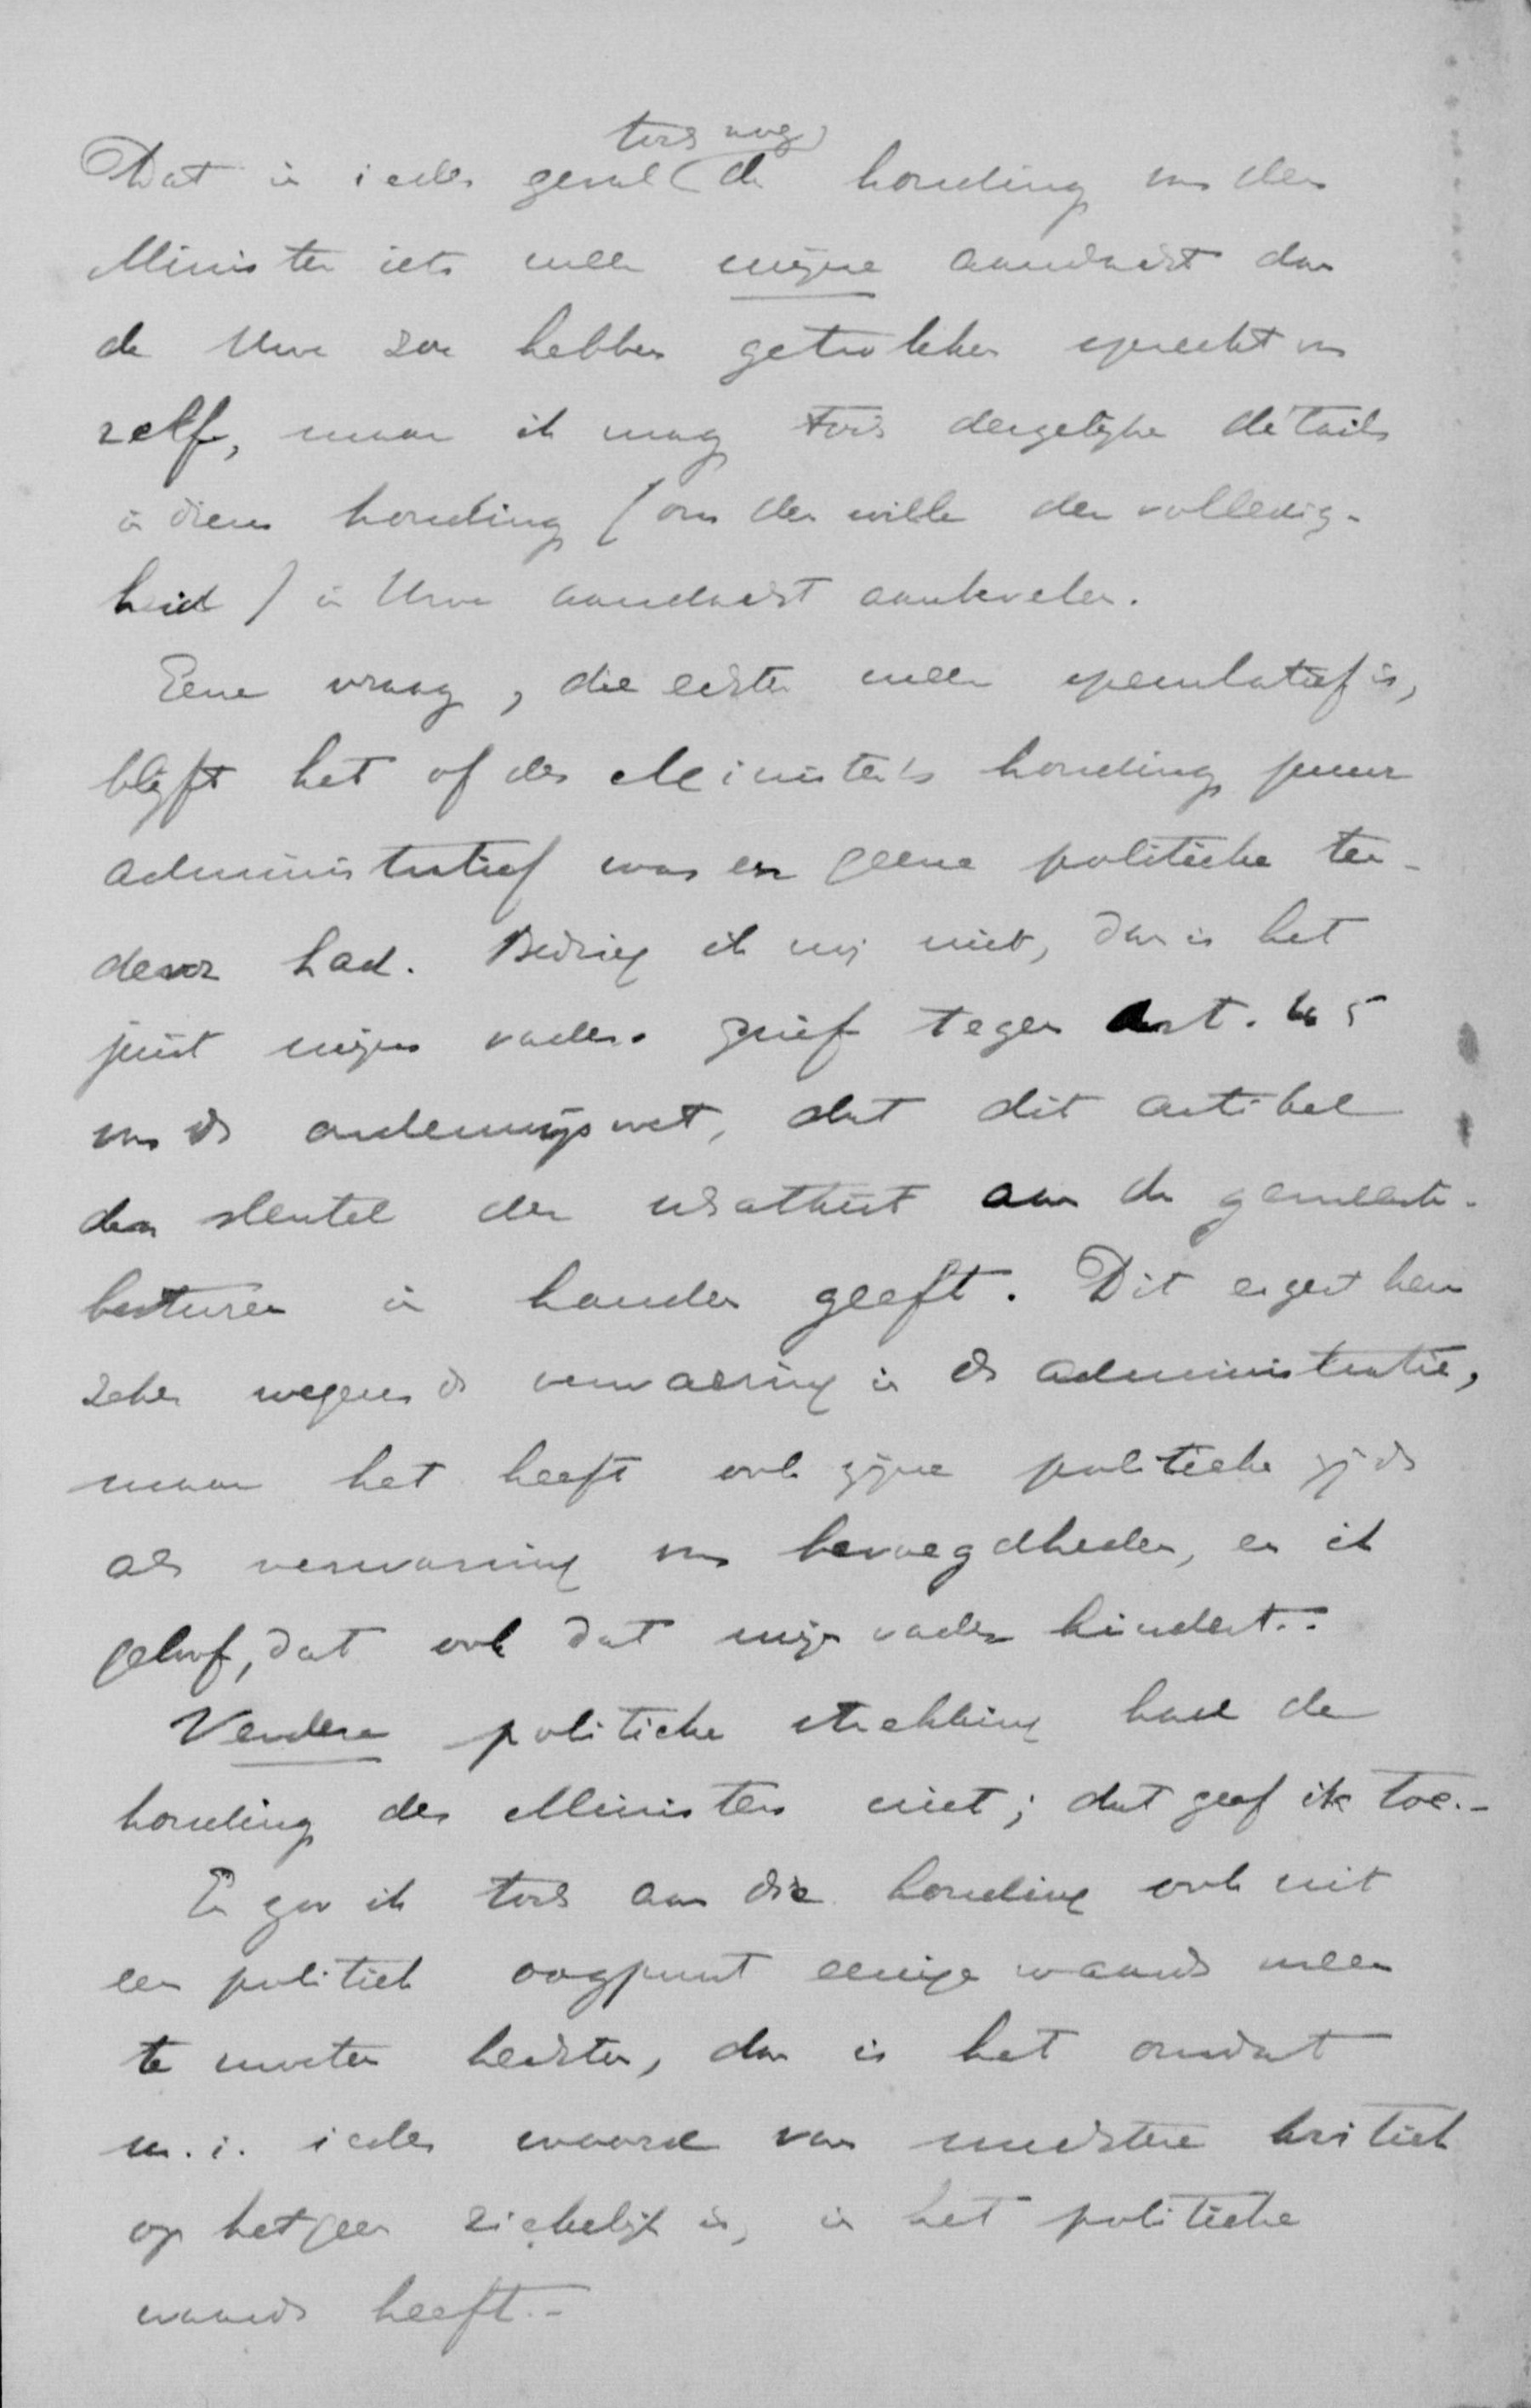 toch nog
Dat in ieder geval (de houding van den
Minister iets meer mijne aandacht dan
de Uwe zou hebben getrokken spreekt van
zelf, maar ik mag toch dergelijke détails
in diens houding (om der wille der volledig-
heid) in Uwe aandacht aanbevelen.
Eene vraag, die echter meer speculatief is,
blijft het of des Minister's houding puur
administratief was en geene politieke ten-
denz had. Bedrieg ik mij niet, dan is het
juist mijns vaders grief tegen Art. 45
van de ordeningswet, dat dit artikel
den sleutel der schatkist aan de gemeente-
besturen in handen geeft. Dit ergert hem
zeker wegens de verwarring in de administratie,
maar het heeft ook zijne politieke zijde
als verwarring van bevoegdheden, en ik
geloof, dat ook dat mijn vader hindert.-
Verdere politieke strekking had de
houding des Ministers niet; dat geef ik toe.-
En zoo ik toch aan die houding ook uit
een politiek oogpunt eenige waarde meen
te moeten hechten, dan is het omdat
m.i. ieder woord van nuchtere kritiek
op hetgeen ziekelijk is, in het politieke
waarde heeft.-